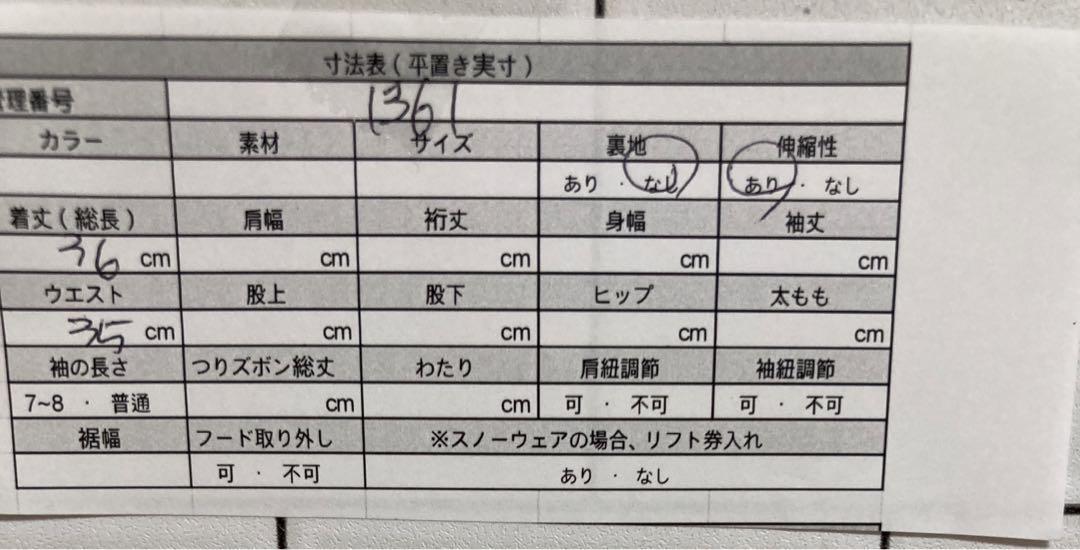 寸法表(平置き実寸)
管理番号 1361
カラー 素材 サイズ 裏地 伸縮性
あり ・ なし あり ・ なし
着丈(総長) 肩幅 裄丈 身幅 袖丈
36 cm cm cm cm cm
ウエスト 股上 股下 ヒップ 太もも
35 cm cm cm cm cm
袖の長さ つりズボン総丈 わたり 肩紐調節 袖紐調節
7~8 ・ 普通 cm cm 可 ・ 不可 可 ・ 不可
裾幅 フード取り外し ※スノーウェアの場合、リフト券入れ
可 ・ 不可 あり ・ なし